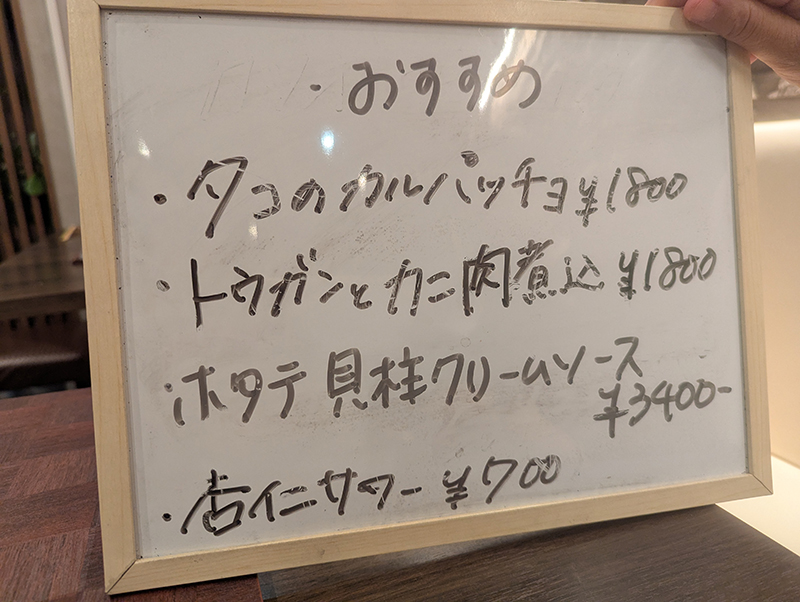 ・おすすめ
・タコのカルパッチョ¥1800
・トウガンとカニ肉煮込¥1800
・ホタテ貝柱クリームソース
¥3400-
・杏仁サワー¥700